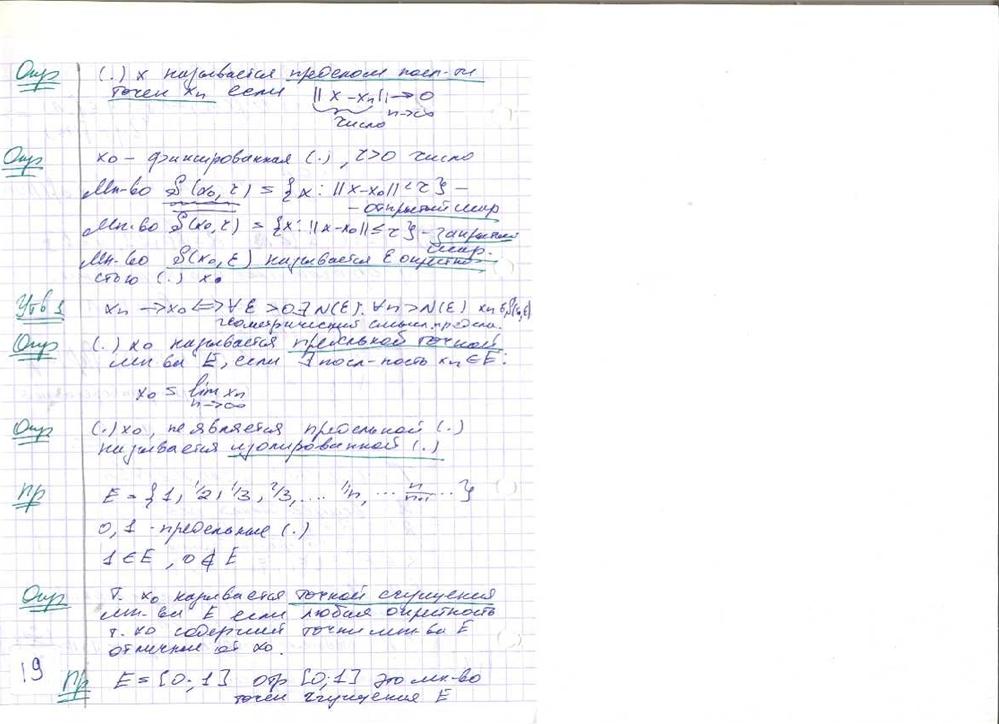 Опр (.) x называется пределом посл-ти
точек xₙ если ||x - xₙ|| → 0
число n→∞
Опр x₀ - фиксированная (.), r>0 число
Мн-во S(x₀, r) = {x: ||x-x₀|| < r} -
- открытый шар
Мн-во S̅(x₀, r) = {x: ||x-x₀|| ≤ r} - закрытый
шар.
Мн-во S(x₀, ε) называется ε окрестно
стью (.) x₀
Утв 1 xₙ → x₀ <=> ∀ε > 0 ∃ N(ε): ∀n > N(ε) xₙ ∈ S(x₀,ε)
геометрический смысл предела.
Опр (.) x₀ называется предельной точкой
мн-ва E, если ∃ посл-ность xₙ ∈ E:
x₀ = lim xₙ
n→∞
Опр (.) x₀, не является предельной (.)
называется изолированной (.)
Пр E = {1, 1/2, 1/3, 2/3, .... 1/n, ... n/n+1 ...}
0, 1 - предельные (.)
1 ∈ E, 0 ∉ E
Опр т. x₀ называется точкой сгущения
мн-ва E если любая окрестность
т. x₀ содержит точки мн-ва E
отличные от x₀.
19
Пр E = [0; 1] отр [0; 1] это мн-во
точек сгущения E